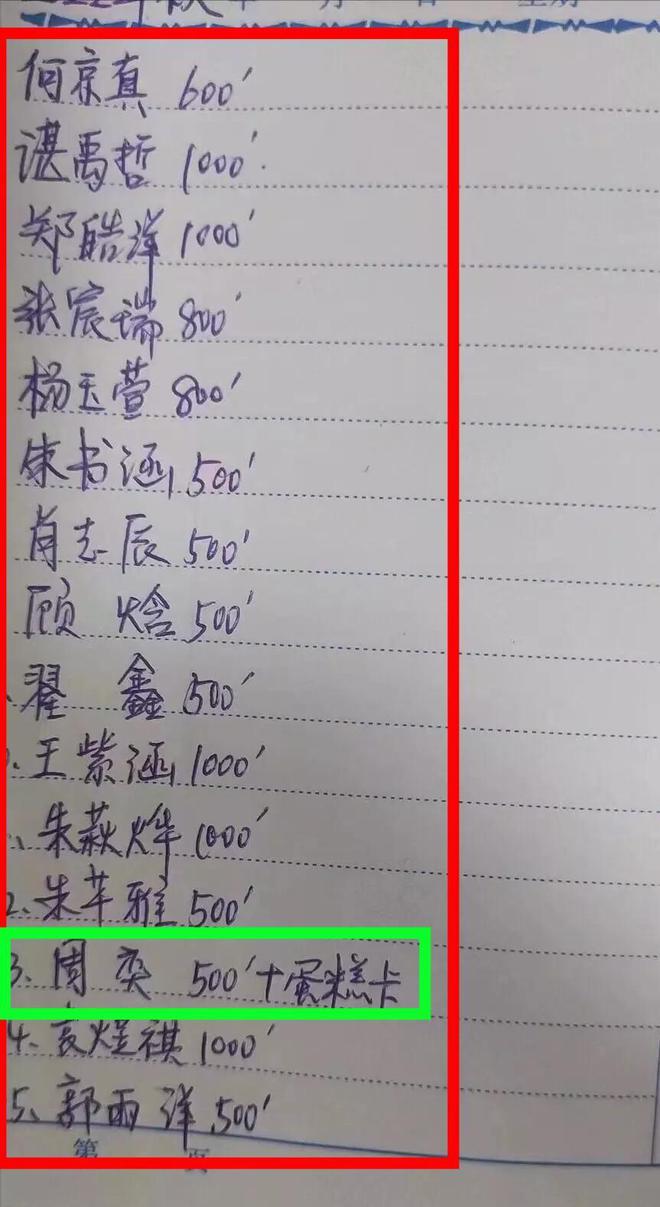 何京真 600′
谌禹哲 1000′
郑皓洋 1000′
张宸瑞 800′
杨玉萱 800′
书涵 500′
肖志辰 500′
顾 焓 500′
翟 鑫 500′
王紫涵 1000′
朱烨 1000′
2、朱芊雅 500′
3、周奕 500′+蛋糕卡
4、袁煜祺 1000′
5、郭雨洋 500′
第 页